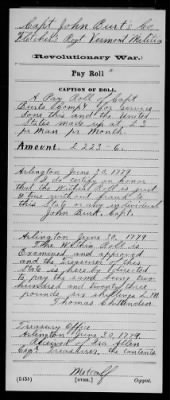 Capt. John Burt's Co.
Fletcher's Regt Vermont Militia
Revolutionary War.
Pay Roll
CAPTION OF ROLL.
A Pay Roll of Capt
Burts Compy for Service
done this and the United
States made up at £2
pr Man pr Month.
Amount. £ 223-6.
Arlington June 30, 1779
I do certify on honor
that the within Roll is just
& true without fraud to
this State or any individual
John Burt, Capt.
Arlington June 30, 1779.
The Within Roll is
Examined and approved
and the Treasurer of this
State is hereby directed
to pay the same being two
hundred and twenty three
pounds six shillings L.M.
Thomas Chittenden
Treasury Office
Arlington June 30, 1779.
Received of Ira Allen
Esqr Treasurer, the contents
Metcalf
(545i) Copyist.